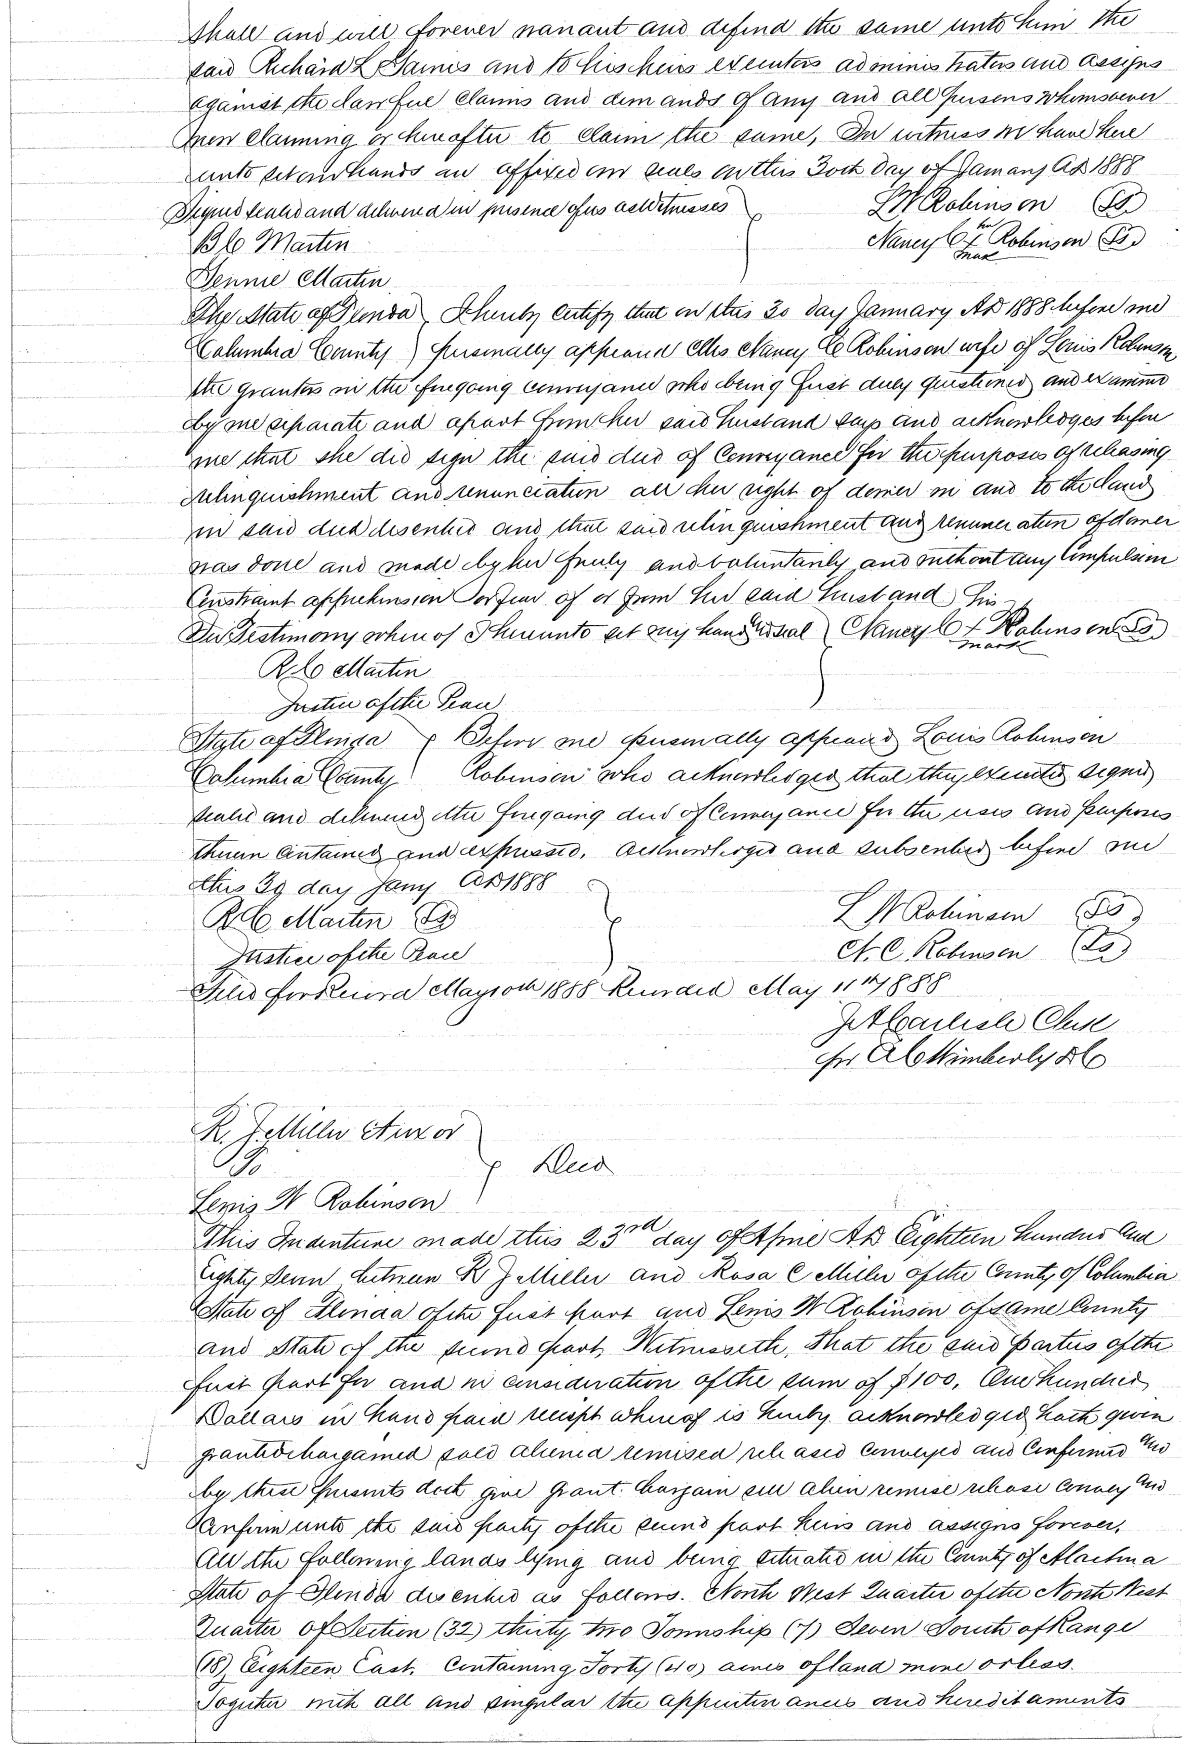 shall and will forever warrant and defend the same unto him the
said Richard L Gaines and to his heirs executors administrators and assigns
against the lawful claims and demands of any and all persons whomsoever
now claiming or hereafter to claim the same, In witness we have here
unto set our hands an affixed our seals on this 30th Day of January AD 1888
Signed sealed and delivered in presence of us as Witnesses
L W Robinson (LS)
B C Martin
Nancy C her x mark Robinson (LS)
Jennie Martin
The State of Florida } I hereby Certify that on this 30 day January AD 1888 before me
Columbia County } personally appeared Mrs Nancy C Robinson wife of Louis Robinson
the grantors in the foregoing conveyance who being first duly questioned and examined
by me separate and apart from her said husband says and acknowledges before
me that she did sign the said deed of Conveyance for the purposes of releasing
relinquishment and renunciation all her right of dower in and to the land
in said deed described and that said relinquishment and renunciation of dower
was done and made by her freely and voluntarily and without any Compulsion
Constraint apprehension or fear of or from her said husband
In Testimony whereof I hereunto set my hand and seal } Nancy C his x mark Robinson (LS)
R C Martin
Justice of the Peace
State of Florida } Before me personally appeared Louis Robinson
Columbia County } Robinson who acknowledged that they executed signed
sealed and delivered the foregoing deed of Conveyance for the uses and purposes
therein contained and expressed. Acknowledged and subscribed before me
this 30 day Jany AD 1888
R C Martin (LS)
L W Robinson (LS)
Justice of the Peace
N. C. Robinson (LS)
Filed for Record May 10th 1888 Recorded May 11th 1888
J A Carlisle Clerk
per A C Wimberly DC
R. J. Miller et uxor
To } Deed
Lewis W Robinson
This Indenture made this 23rd day of April AD Eighteen hundred and
Eighty Seven between R J Miller and Rosa C Miller of the County of Columbia
State of Florida of the first part and Lewis W Robinson of same County
and State of the second part, Witnesseth, That the said parties of the
first part for and in consideration of the sum of $100. One hundred
Dollars in hand paid receipt whereof is hereby acknowledged hath given
granted bargained sold aliened remised released conveyed and confirmed and
by these presents doth give grant bargain sell alien remise release convey and
Confirm unto the said party of the second part heirs and assigns forever,
All the following lands lying and being situated in the County of Alachua
State of Florida described as follows. North West Quarter of the North West
Quarter of Section (32) thirty two Township (7) Seven South of Range
(18) Eighteen East. Containing Forty (40) acres of land more or less.
Together with all and singular the appurtenances and hereditaments